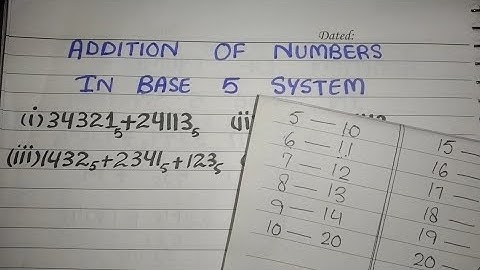 Dated:
ADDITION OF NUMBERS
IN BASE 5 SYSTEM
(i) 34321₅+24113₅
(iii) 1432₅+2341₅+123₅
5 — 10
6 — 11
7 — 12
8 — 13
9 — 14
10 — 20
15 —
16 —
17 —
18 —
19 —
20 —